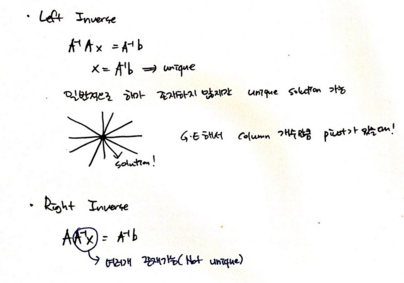 • Left Inverse
A⁻¹Ax = A⁻¹b
x = A⁻¹b ⇒ unique
일반적으로 해가 존재하지 않지만 unique solution 가능
G.E해서 column 개수만큼 pivot가 있으면!
solution!
• Right Inverse
AA⁻¹x = A⁻¹b
여러개 존재가능(Not unique)